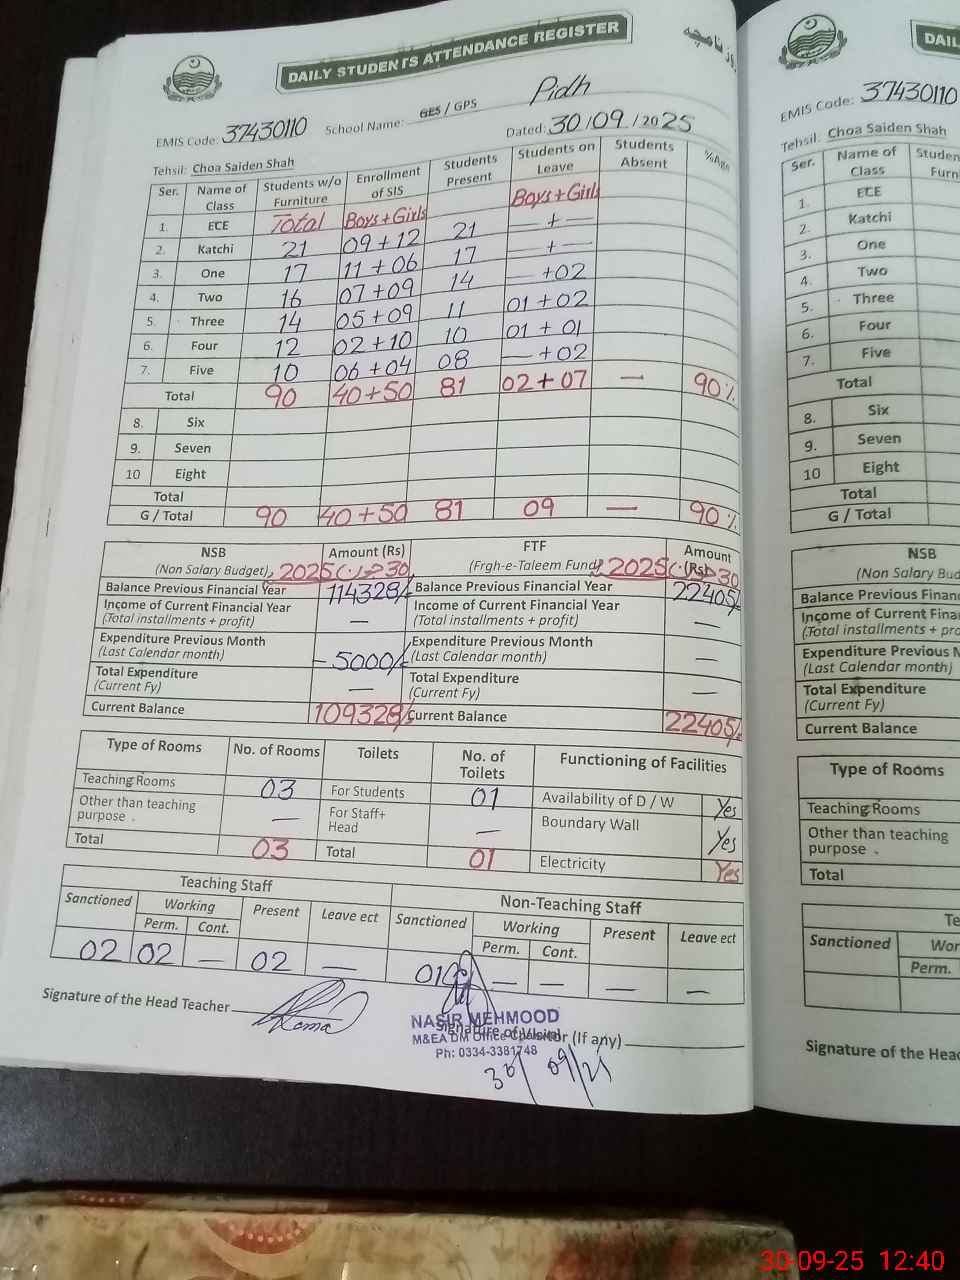 DAILY STUDENTS ATTENDANCE REGISTER
EMIS Code: 37430110 School Name: GES / GPS Pidh
Tehsil: Choa Saiden Shah Dated: 30/09/2025
Ser. Name of Class Students w/o Furniture Enrollment of SIS Students Present Students on Leave Students Absent %Age
1. ECE Total Boys+Girls Boys+Girls
2. Katchi 21 09+12 21 — + —
3. One 17 11+06 17 — + —
4. Two 16 07+09 14 — +02
5. Three 14 05+09 11 01+02
6. Four 12 02+10 10 01+01
7. Five 10 06+04 08 — +02
Total 90 40+50 81 02+07 — 90%
8. Six
9. Seven
10 Eight
Total
G / Total 90 40+50 81 09 — 90%
NSB Amount (Rs) FTF Amount (Rs)
(Non Salary Budget) 2025 30 (Frgh-e-Taleem Fund) 2025 30
Balance Previous Financial Year 114328/- Balance Previous Financial Year 22405/-
Income of Current Financial Year — Income of Current Financial Year —
(Total installments + profit) (Total installments + profit)
Expenditure Previous Month - 5000/- Expenditure Previous Month —
(Last Calendar month) (Last Calendar month)
Total Expenditure — Total Expenditure —
(Current Fy) (Current Fy)
Current Balance 109328/- Current Balance 22405/-
Type of Rooms No. of Rooms Toilets No. of Toilets Functioning of Facilities
Teaching Rooms 03 For Students 01 Availability of D / W Yes
Other than teaching purpose . — For Staff+ Head — Boundary Wall Yes
Total 03 Total 01 Electricity Yes
Teaching Staff Non-Teaching Staff
Sanctioned Working Present Leave ect Sanctioned Working Present Leave ect
Perm. Cont. Perm. Cont.
02 02 — 02 — 01 — — — —
Signature of the Head Teacher
NASIR MEHMOOD
Signature of Visitor (If any)
M&EA DM Office Chakwal
Ph: 0334-3381748
30/09/25
DAIL
EMIS Code: 37430110
Tehsil: Choa Saiden Shah
Ser. Name of Class Studen
Furn
1. ECE
2. Katchi
3. One
4. Two
5. Three
6. Four
7. Five
Total
8. Six
9. Seven
10 Eight
Total
G / Total
NSB
(Non Salary Bud
Balance Previous Financ
Income of Current Finan
(Total installments + pro
Expenditure Previous M
(Last Calendar month)
Total Expenditure
(Current Fy)
Current Balance
Type of Rooms
Teaching Rooms
Other than teaching
purpose .
Total
Te
Sanctioned Wor
Perm.
Signature of the Head
30-09-25 12:40